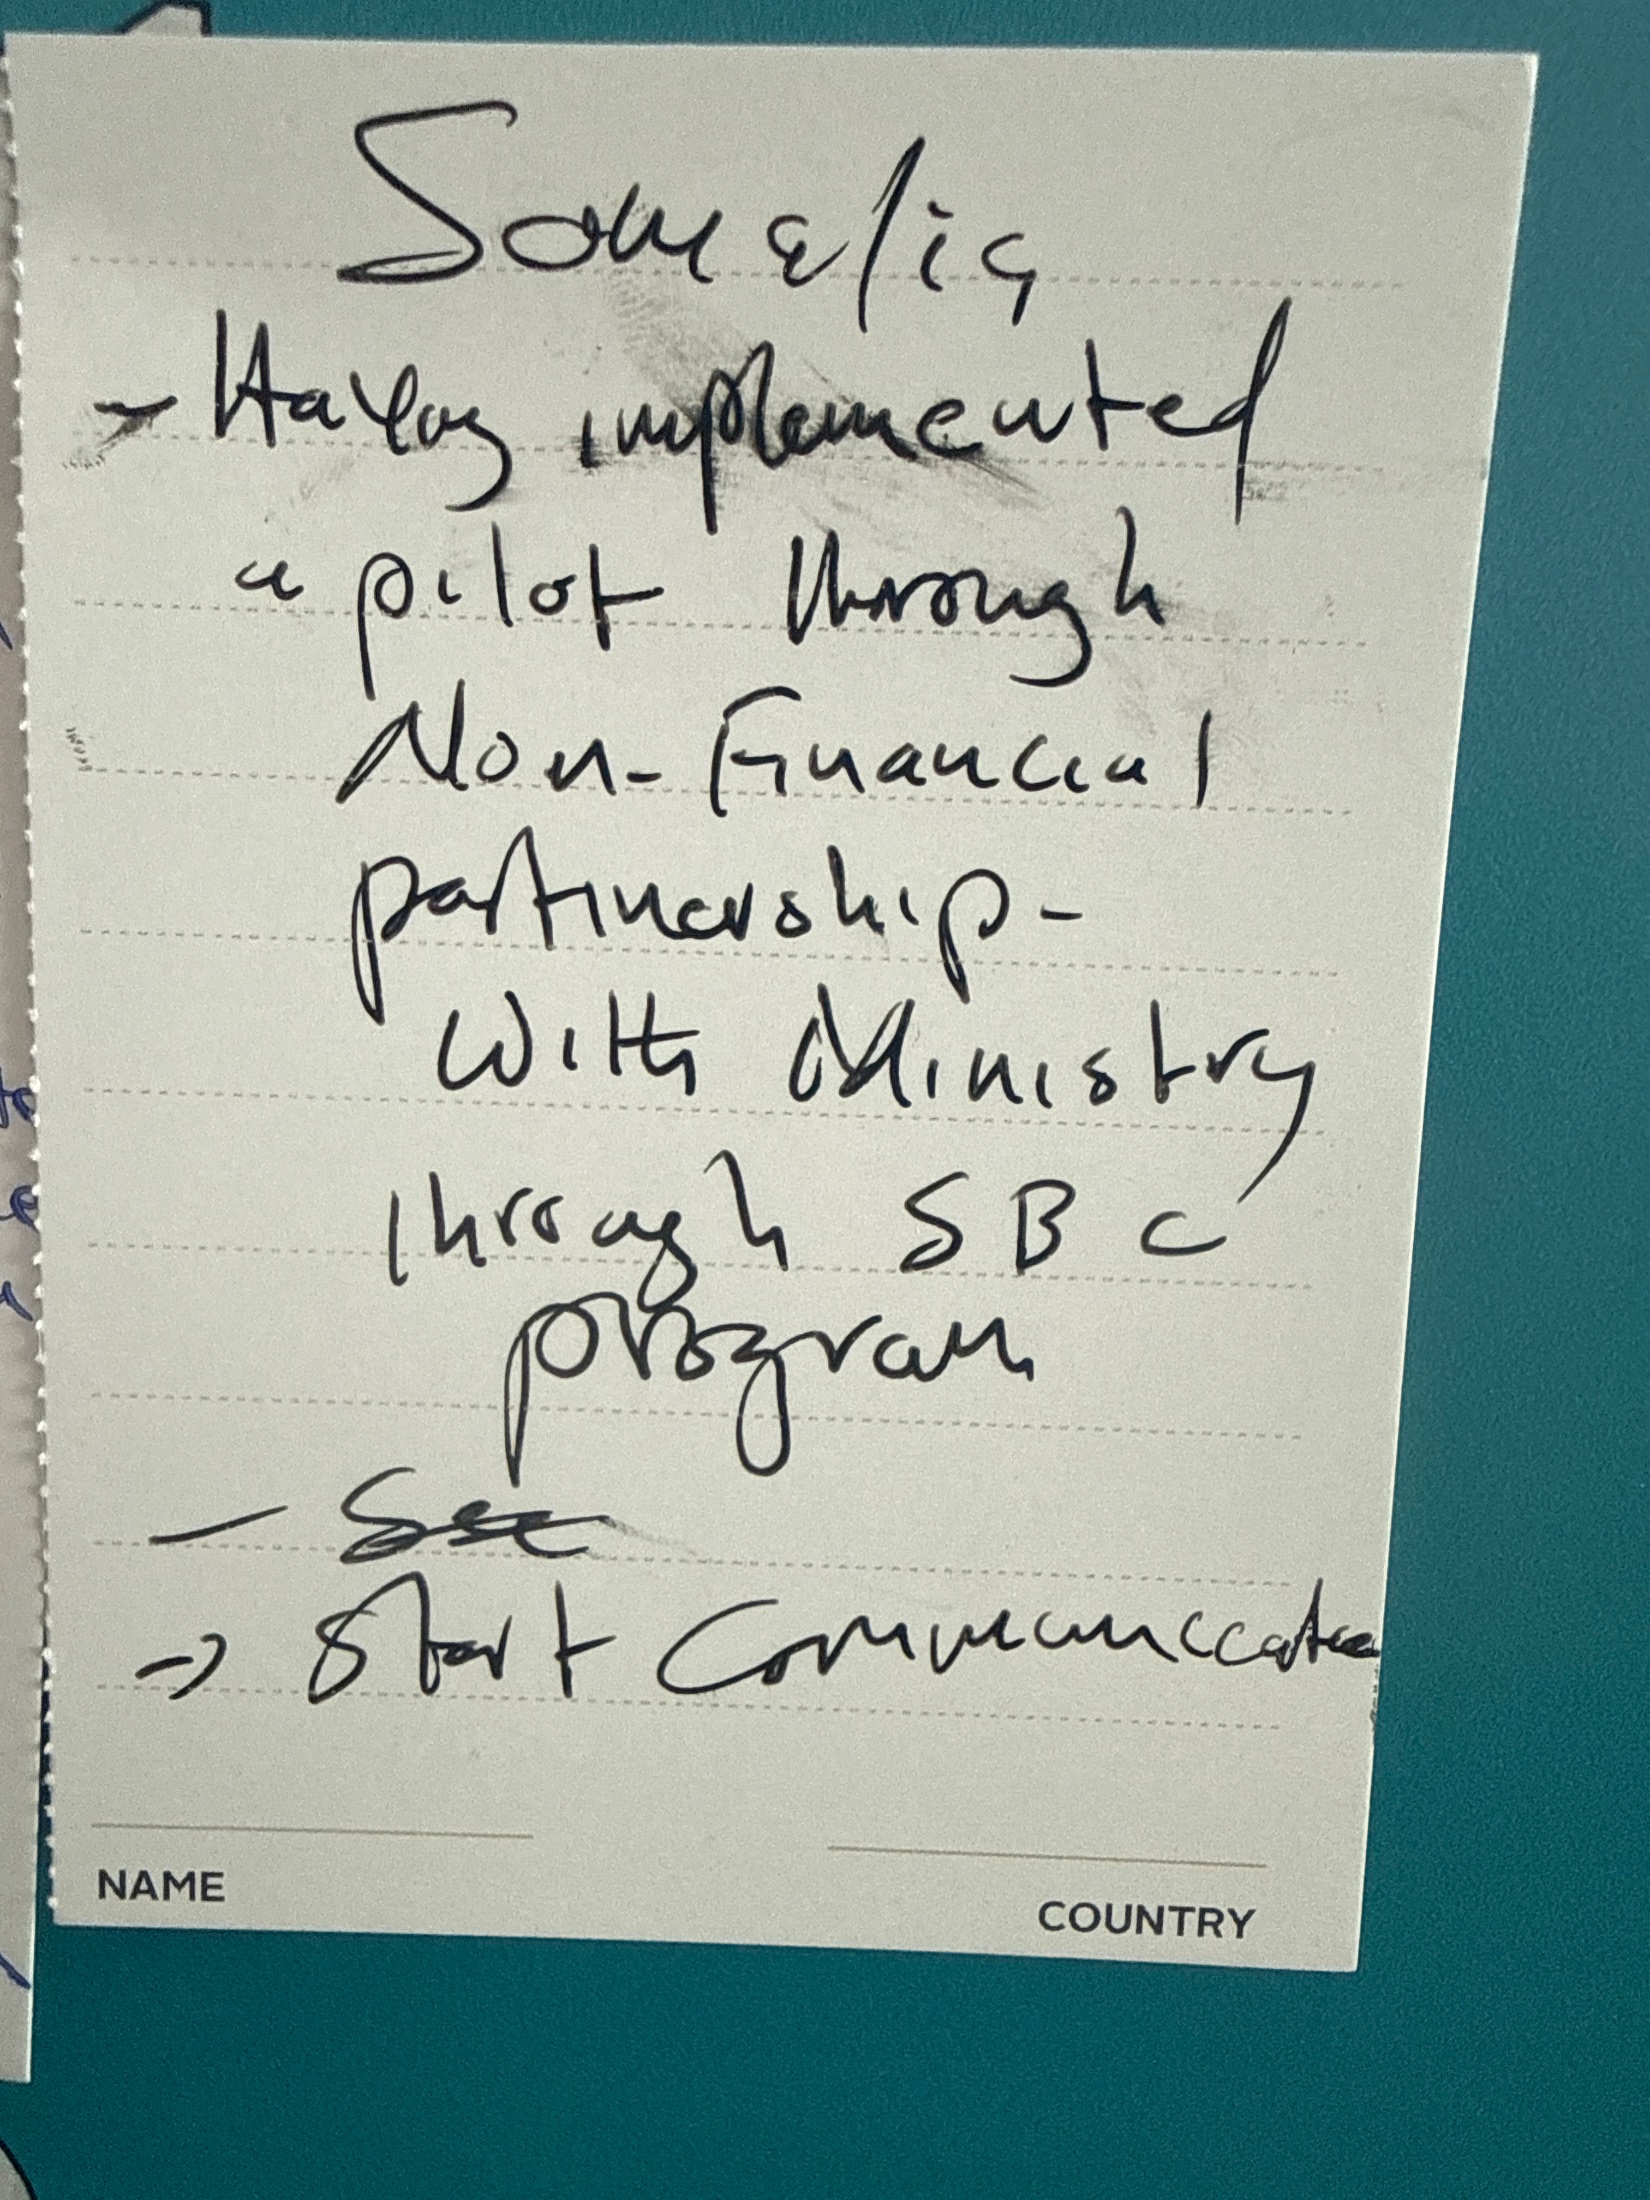 Somalia
- Having implemented
a pilot through
Non-Financial
partinership-
With Ministry
through SBC
program
-
-> Start Communication
NAME
COUNTRY